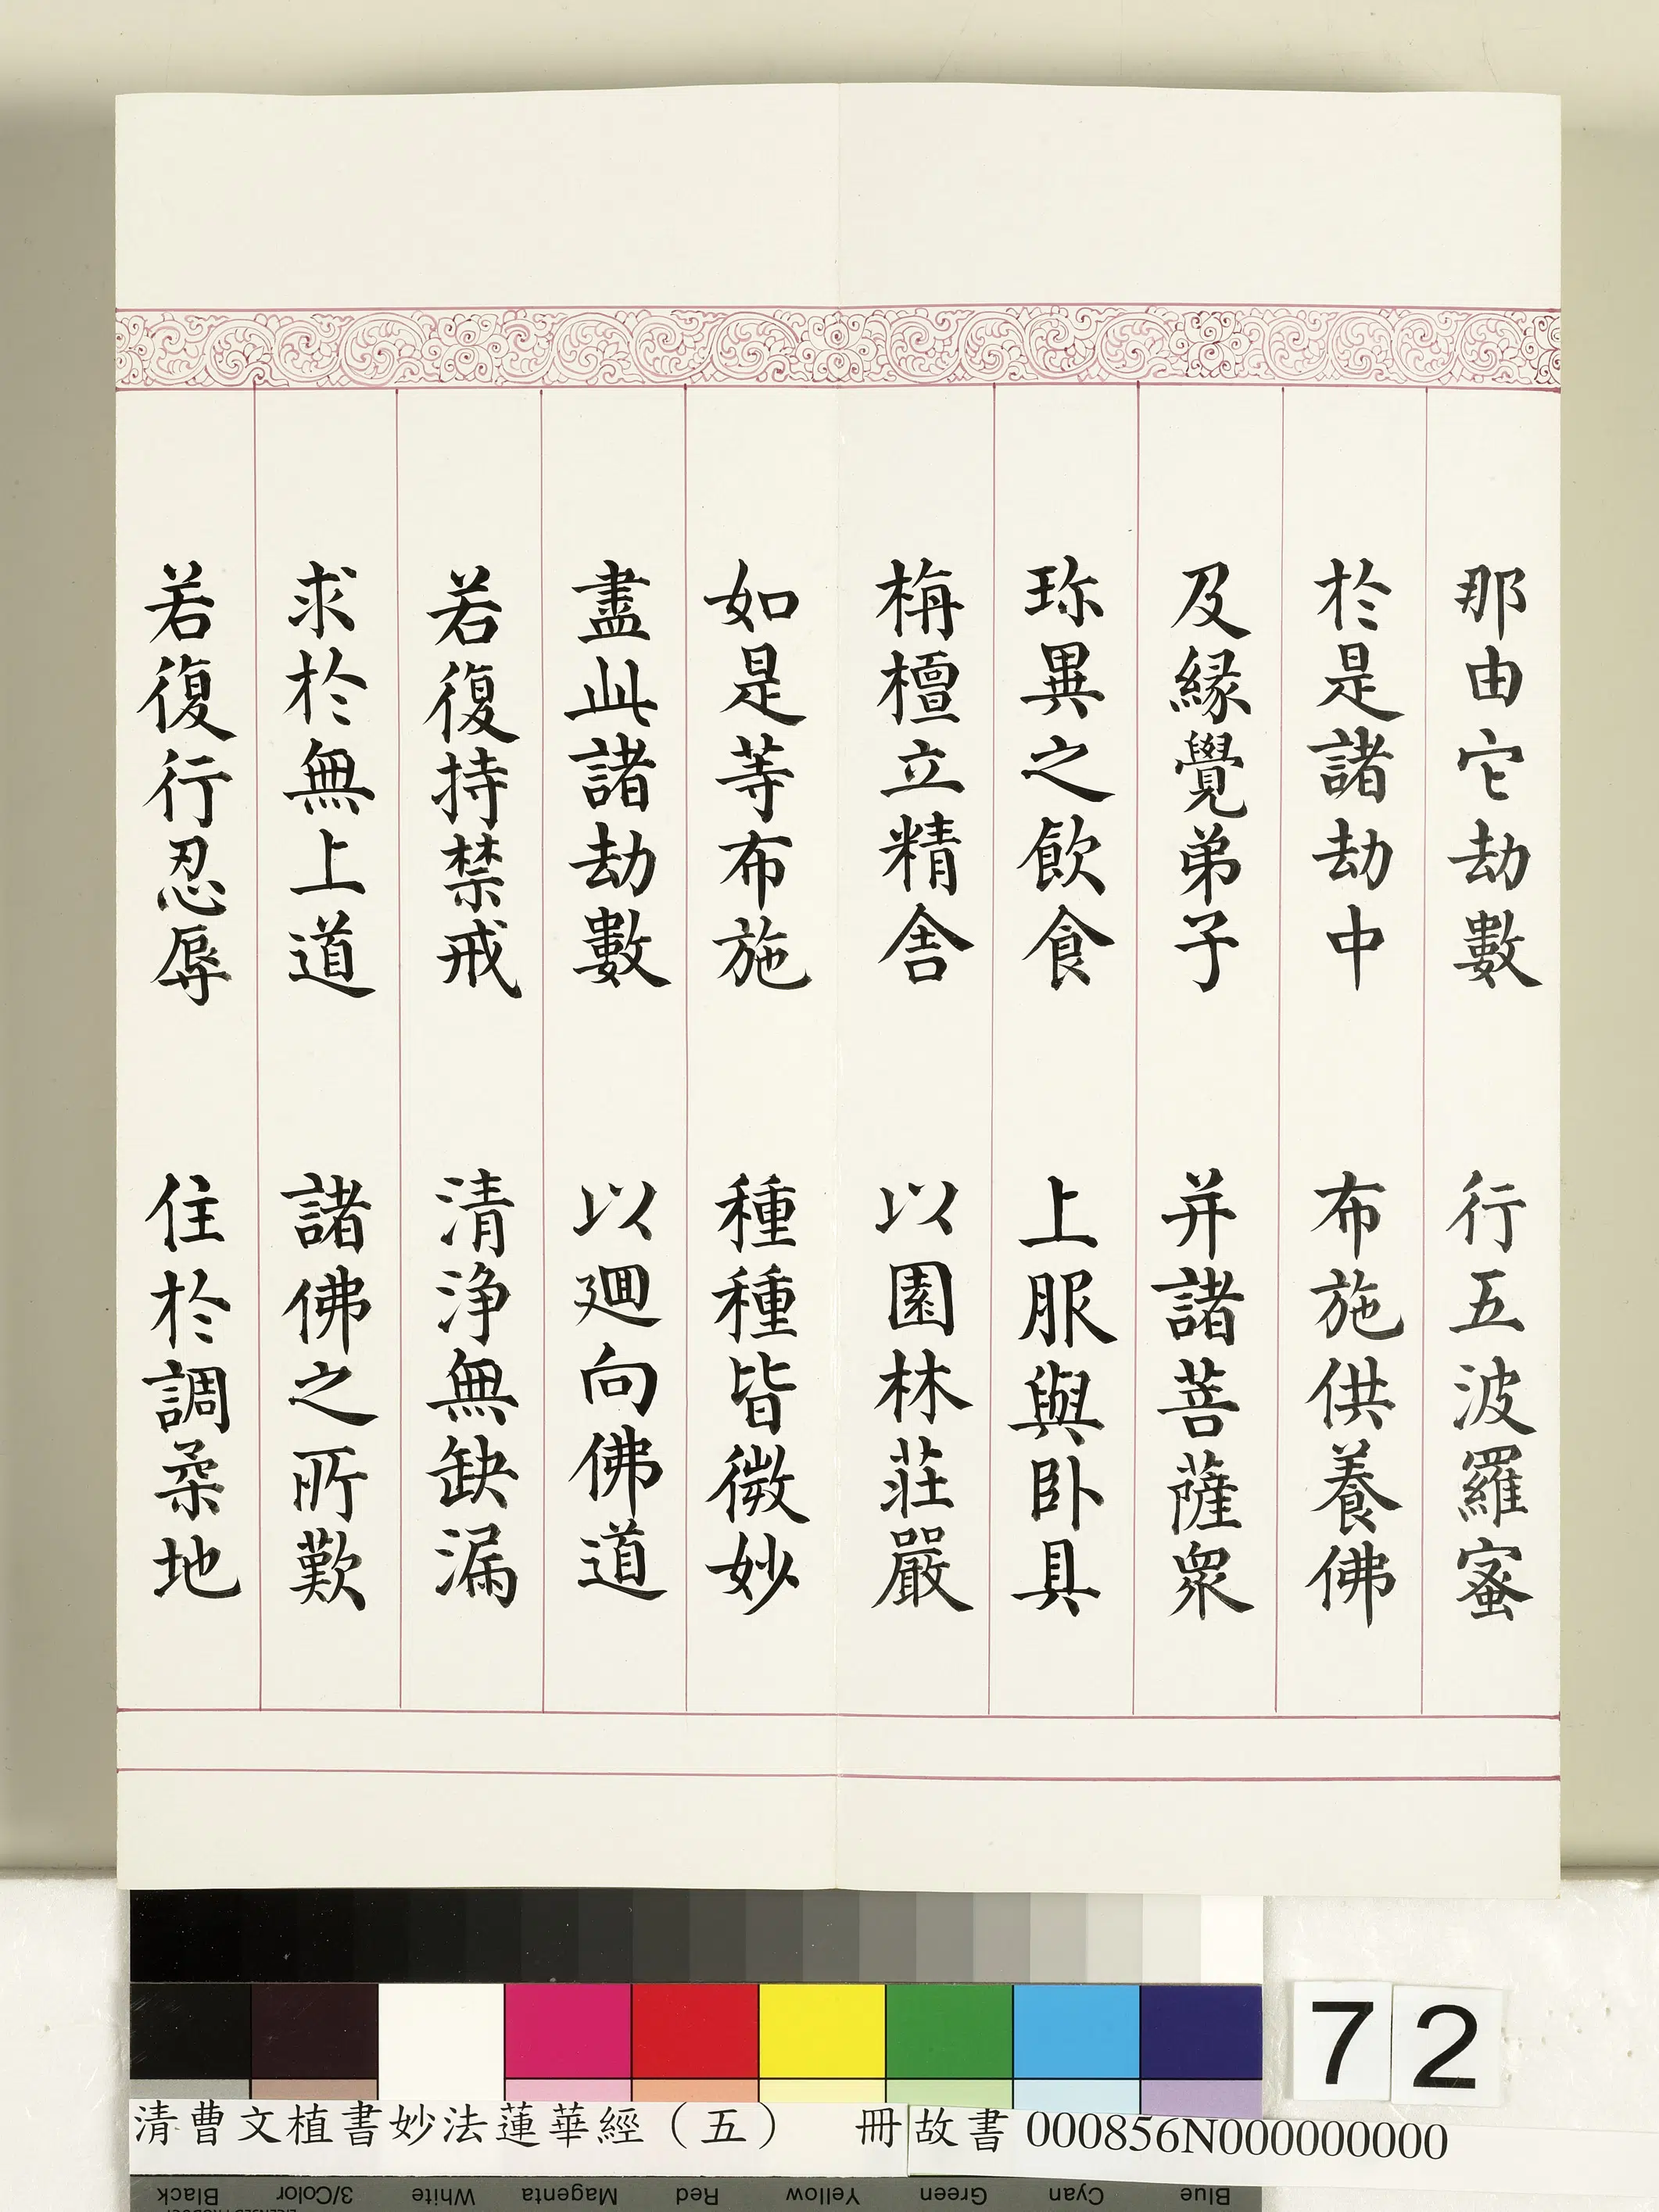 那由它劫數　行五波羅蜜
於是諸劫中　布施供養佛
及緣覺弟子　并諸菩薩眾
珎異之飲食　上服與臥具
栴檀立精舍　以園林莊嚴
如是等布施　種種皆微妙
盡此諸劫數　以廻向佛道
若復持禁戒　清淨無缺漏
求於無上道　諸佛之所歎
若復行忍辱　住於調柔地
72
清曹文植書妙法蓮華經（五）　冊 故書 000856N000000000
Black 3/Color White Magenta Red Yellow Green Cyan Blue